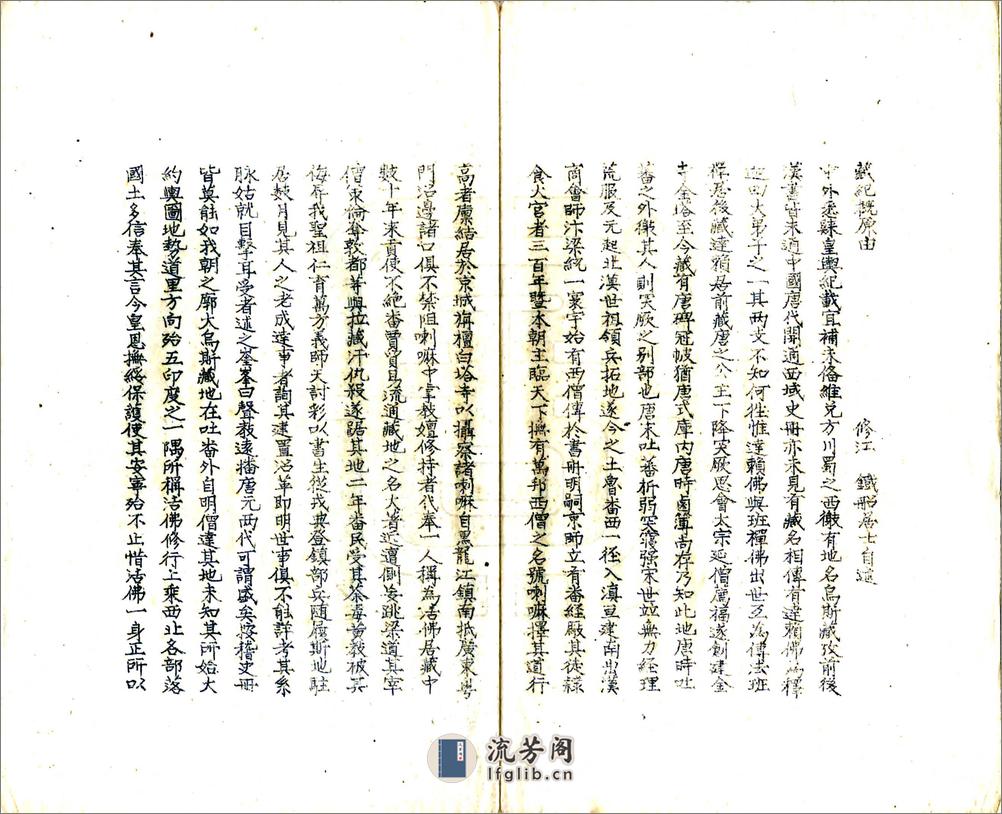 藏紀概原由
修江 鐵船居士自述
中外悉隸皇輿紀載宜補未俻維兌方川蜀之西徼有地名烏斯藏攷前後
漢書皆未通中國唐代開通西域史冊亦未見有藏名相傳有達賴佛為釋
迦四大弟子之一其兩支不知何徃惟達賴佛與班禪佛出世互為傳法班
禪居後藏達賴居前藏唐之公主下降突厥思會太宗延僧薦福遂創建金
寺金塔至今藏有唐碑冠帔猶唐式庫內唐時鹵簿尚存乃知此地唐時吐
蕃之外徼其人則突厥之别部也唐末吐蕃析弱突厥強宋世並無力經理
荒服及元起北漢世祖領兵拓地遂今之土魯番西一徑入滇旦建南出漢
商會師汴梁統一寰宇始有西僧傳於書冊明嗣京師立有番經厰其徒祿
食火官者三百年暨本朝主臨天下撫有萬邦西僧之名號喇嘛擇其道行
高者廪結居於京城旃檀白塔寺以攝察諸喇嘛自黑龍江鎮南抵廣東粤
門沿邊諸口俱不禁阻喇嘛中掌教嬗修持者代奉一人稱為活佛居藏中
數十年來貢使不絶番賈貿易流通藏地之名大著近澶側妄跳梁道其宰
僧策倫奪敦都等與拉藏汗仇殺遂踞其地二年番民受其荼毒黄教被其
侮辱我聖祖仁育萬方義師天討彩以書生從戎典登鎮部兵随屬斯地駐
居數月見其人之老成達事者詢其建置沿革即明世事俱不能詳考其系
脉姑就目擊耳受者述之峚峯曰聲教遠播唐元两代可謂盛矣按稽史冊
皆莫能如我朝之廓大烏斯藏地在吐番外自明僧達其地未知其所始大
約輿圖地勢道里方向殆五印度之一隅所稱活佛修行上乘西北各部落
國土多信奉其言今皇恩撫綏保護使其安寧殆不止惜活佛一身正所以
流芳阁
lfglib.cn